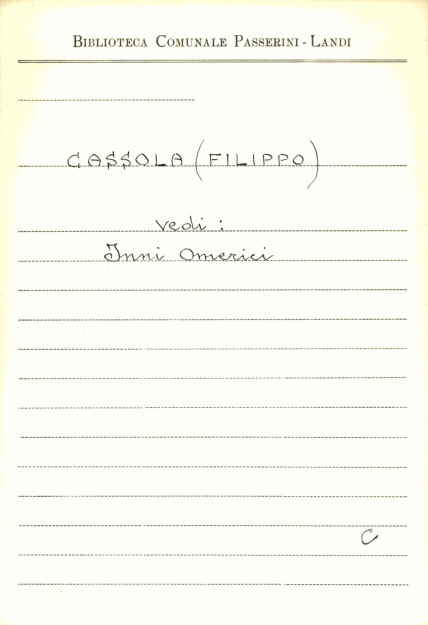 BIBLIOTECA COMUNALE PASSERINI - LANDI
CASSOLA (FILIPPO)
vedi :
Inni Omerici
C